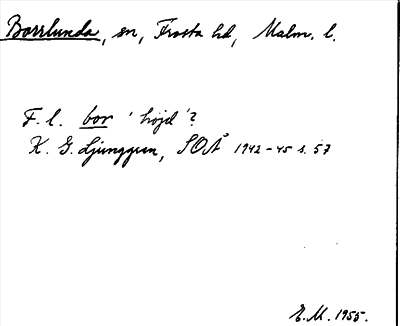 Borrlunda, sn, Frosta hd, Malm. l.
F. l. bor 'höjd'?
K. G. Ljunggren, SOÅ 1942-45 s. 57
E. M. 1955.